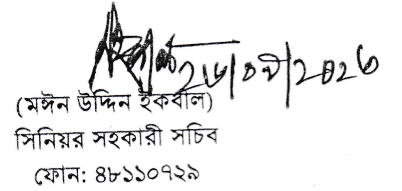 (মঈন উদ্দিন ইকবাল)
সিনিয়র সহকারী সচিব
ফোন: ৪৮১১০৭২৯